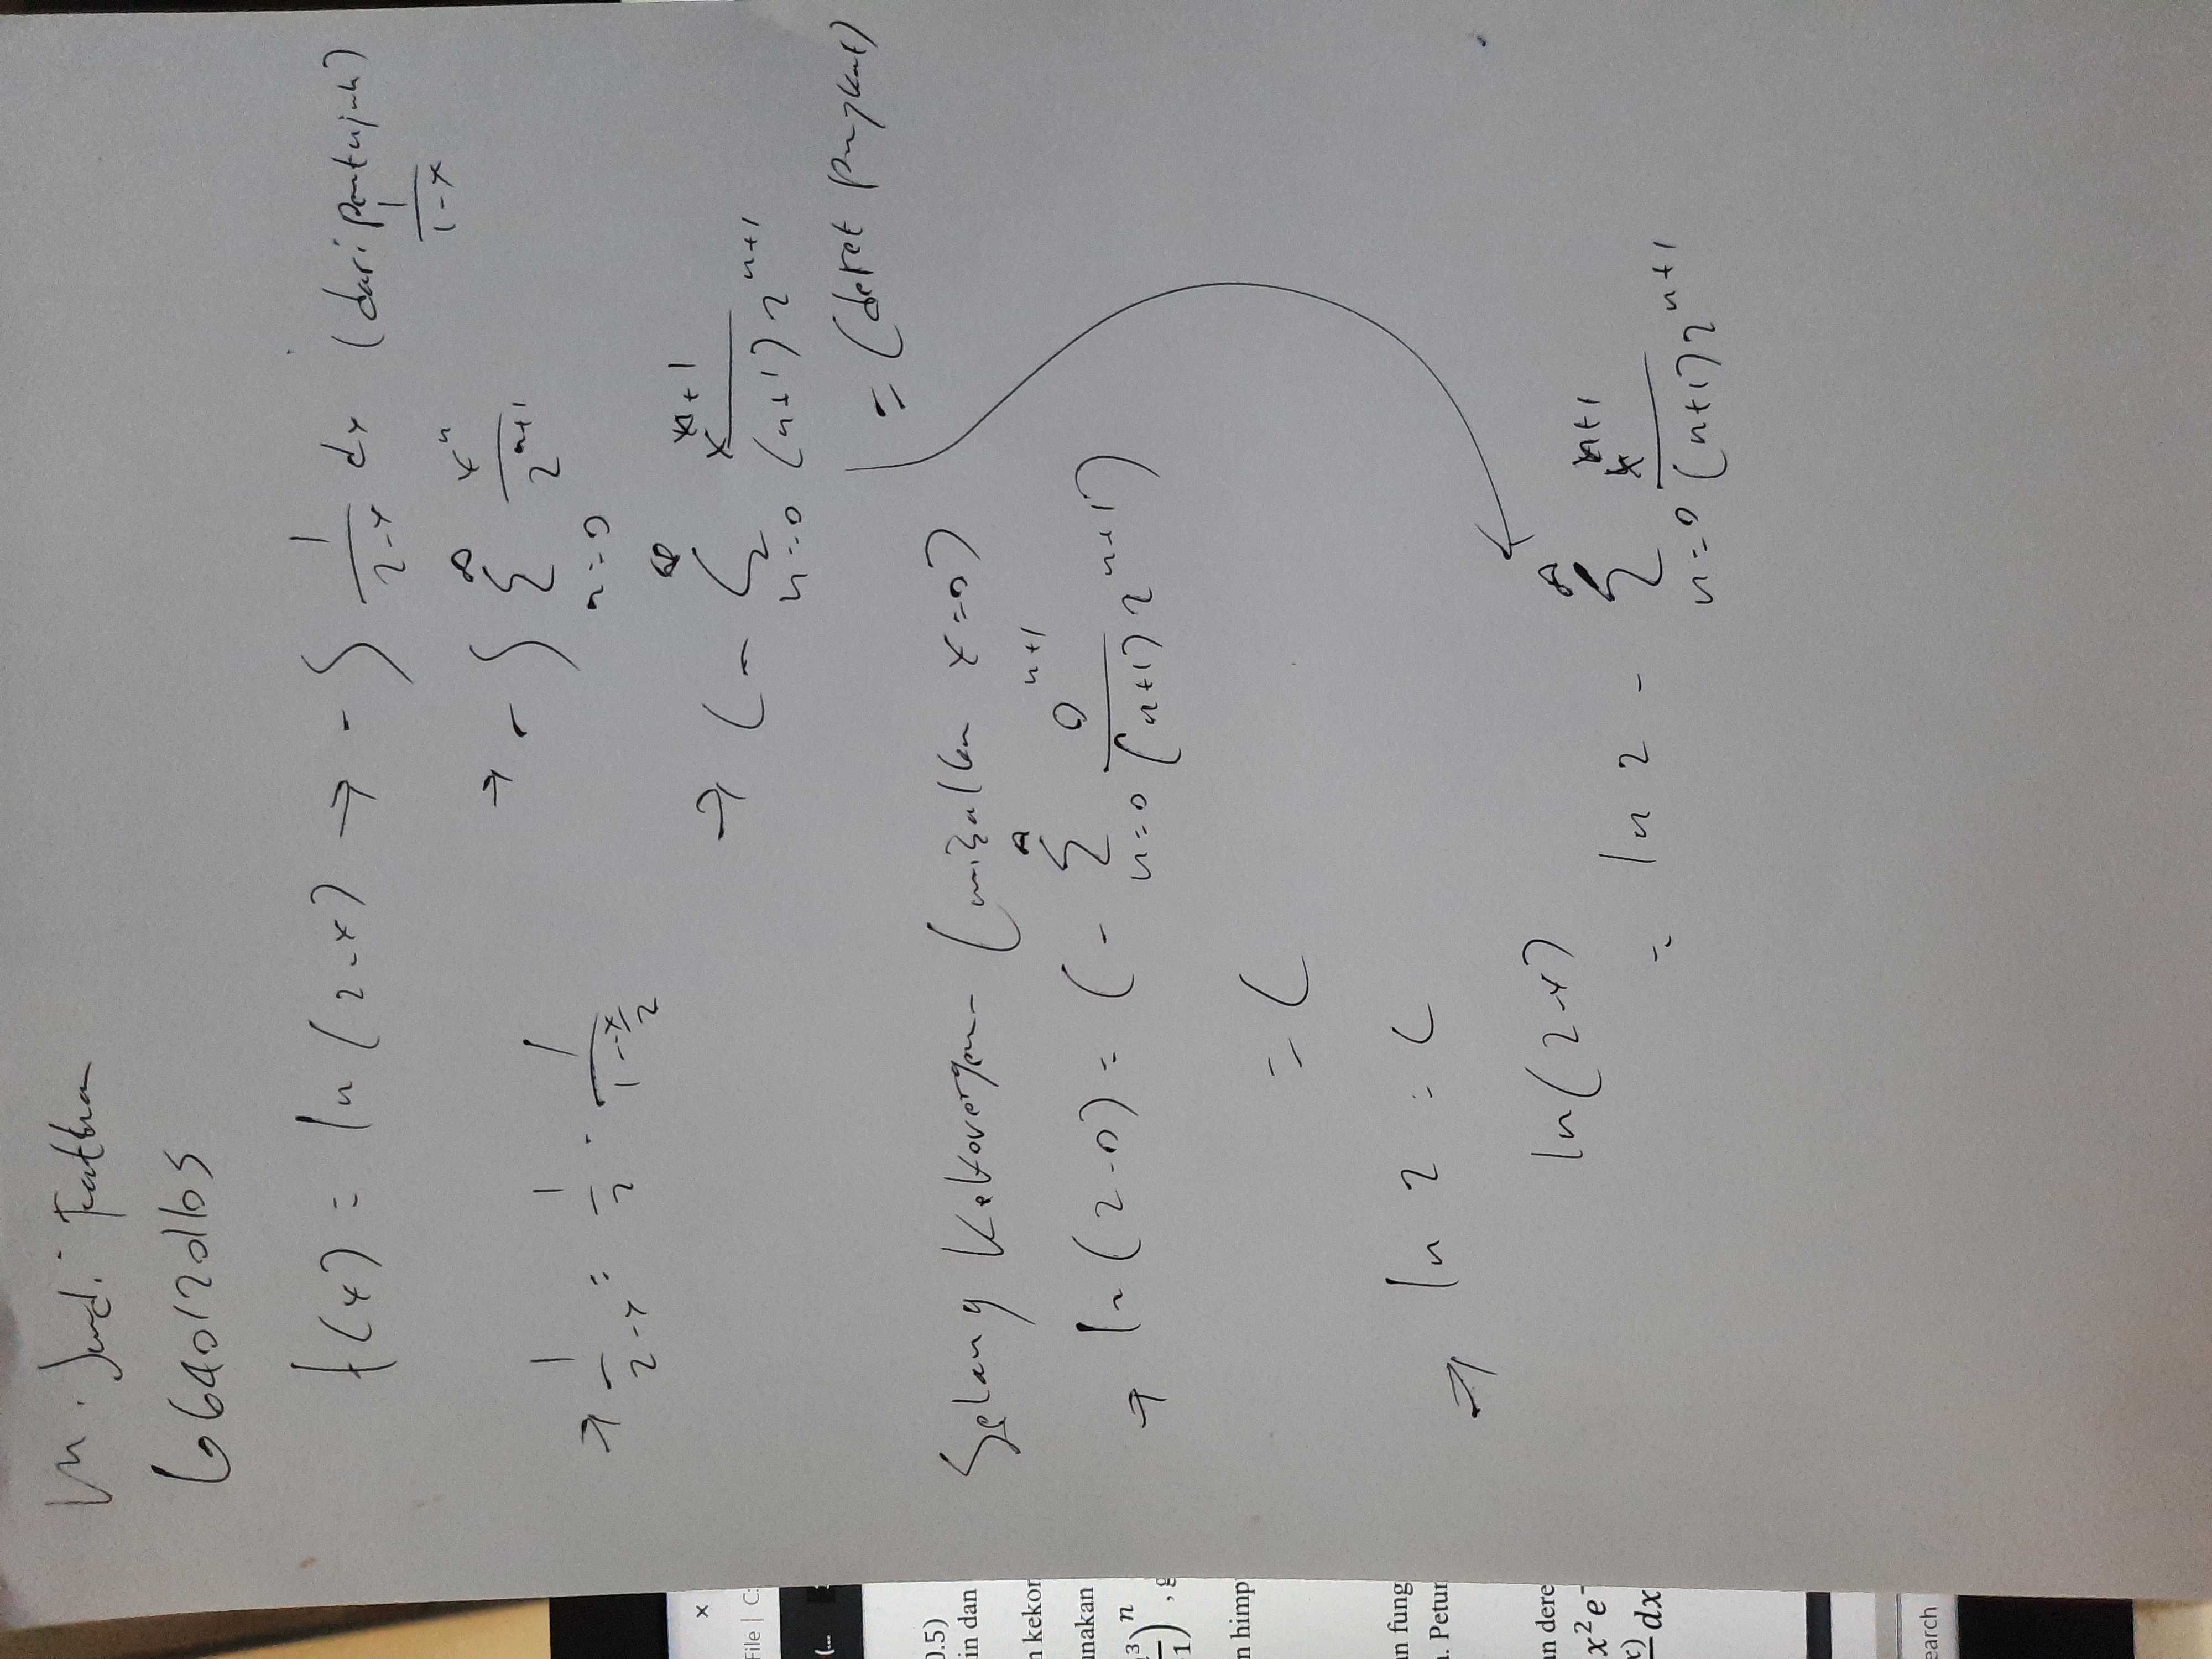 M. Jundi Fathan
6640120165
f(x) = ln (2-x) → - ∫ 1/(2-x) dx (dari pentunjuk) 1/(1-x)
→ - ∫ ∑ n=0 ∞ x^n / 2^(n+1)
→ 1/(2-x) = 1/2 · 1/(1-x/2)
→ C - ∑ n=0 ∞ x^(n+1) / (n+1) 2^(n+1)
= (deret pangkat)
Selang Kekovergenan (misalkan x=0)
→ ln (2-0) = C - ∑ n=0 ∞ 0^(n+1) / (n+1) 2^(n+1)
= C
→ ln 2 = C
ln(2-x)
= ln 2 - ∑ n=0 ∞ x^(n+1) / (n+1) 2^(n+1)
×
File | C:
(...
0.5)
in dan
n kekon
unakan
3 n
1) , g
n himp
an fung
. Petun
an dere
x² e⁻
x) dx
earch